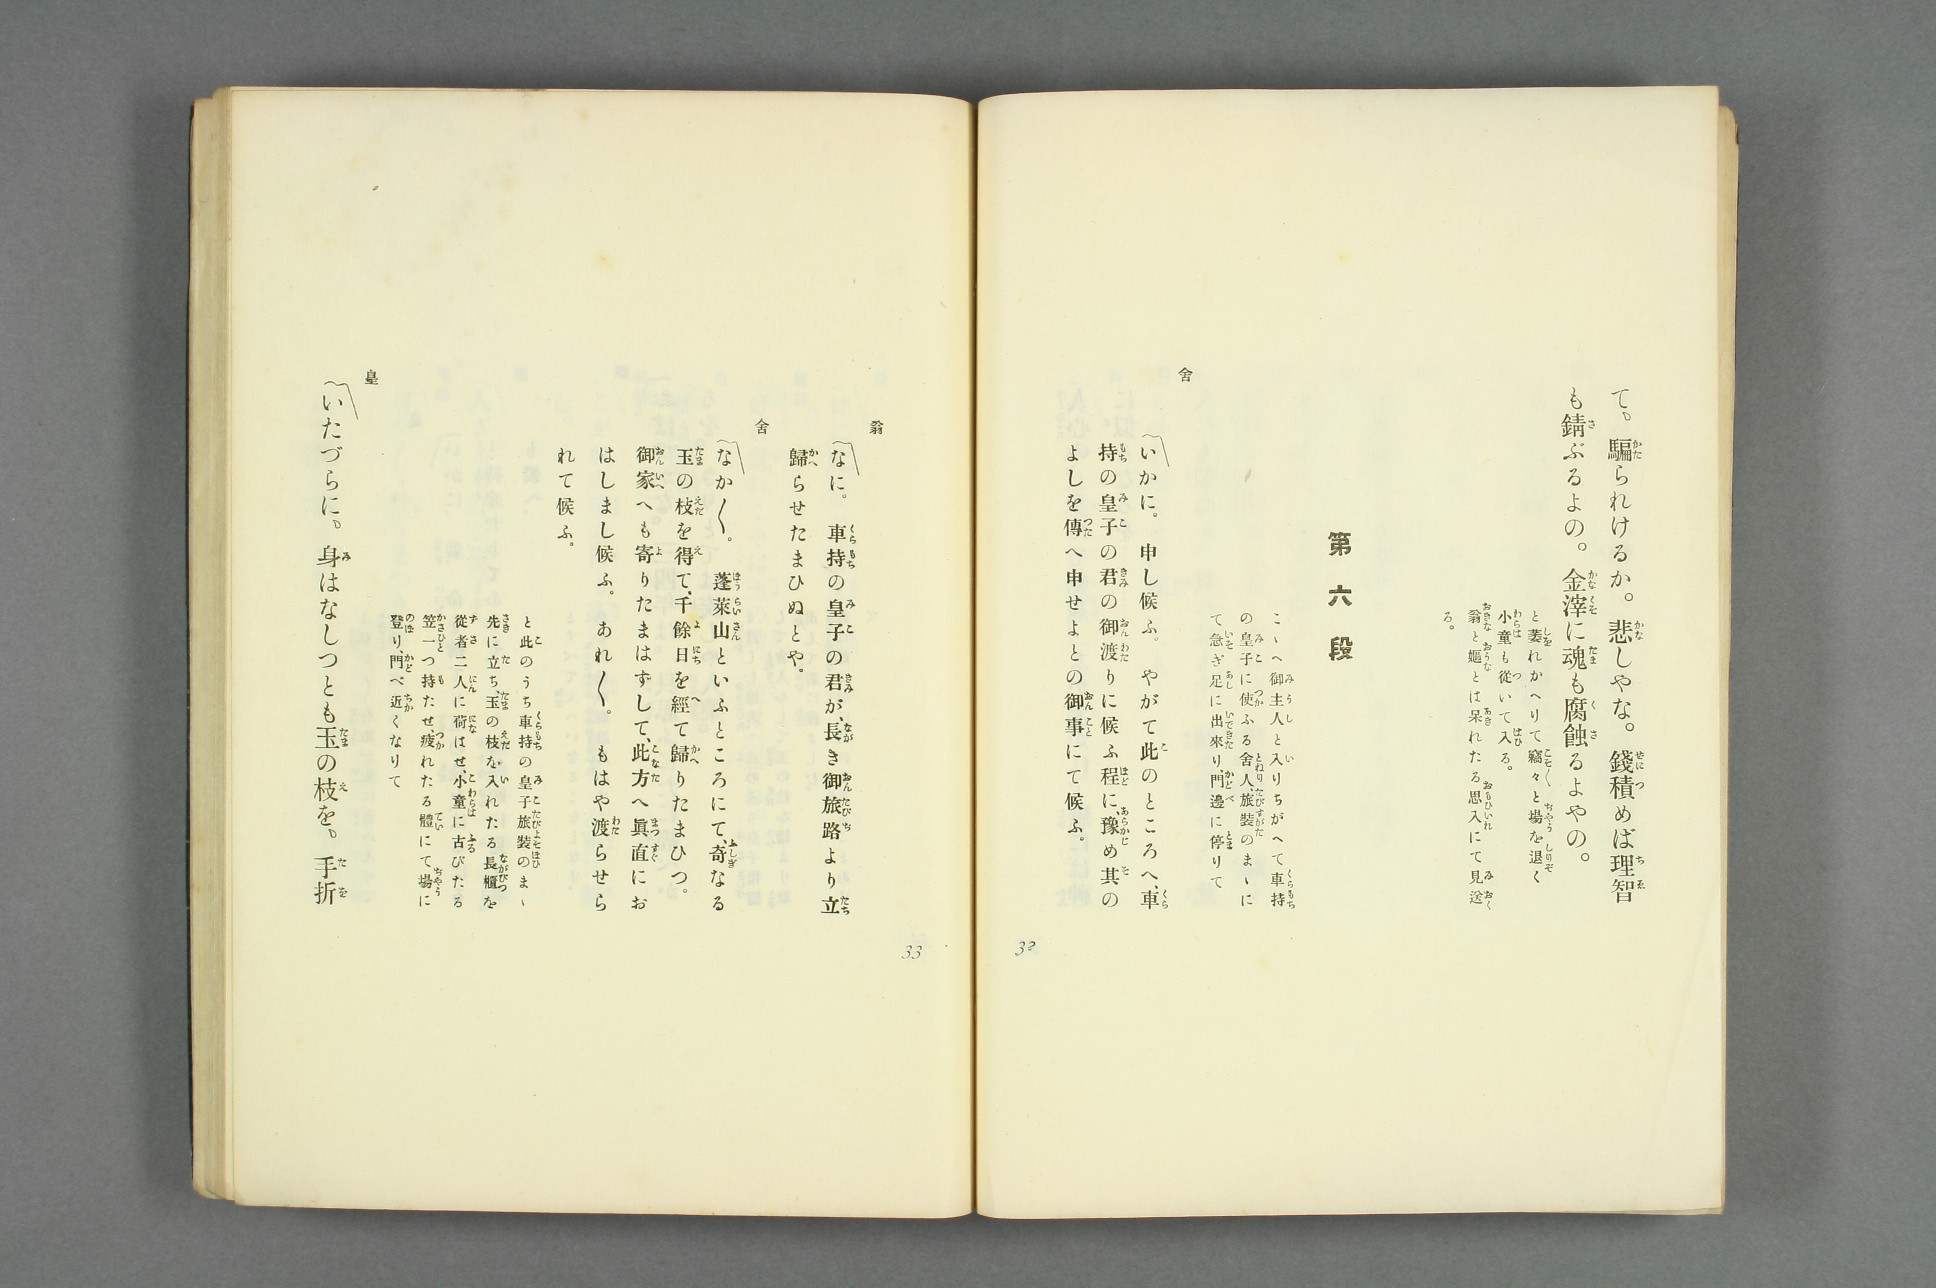 て。騙られけるか。悲しやな。錢積めば理智
も錆ぶるよの。金滓に魂も腐蝕るよやの。
と萎れかへりて竊々と場を退く
小童も從いて入る。
翁と嫗とは呆れたる思入にて見送
る。
第六段
こゝへ御主人と入りちがへて車持
の皇子に使ふる舍人、旅裝のまゝに
て急ぎ足に出來り、門邊に停りて
舍
いかに。申し候ふ。やがて此のところへ、車
持の皇子の君の御渡りに候ふ程に豫め其の
よしを傳へ申せよとの御事にて候ふ。
32
翁
なに。車持の皇子の君が、長き御旅路より立
歸らせたまひぬとや。
舍
なか〳〵。蓬萊山といふところにて、奇なる
玉の枝を得て、千餘日を經て歸りたまひつ。
御家へも寄りたまはずして、此方へ眞直にお
はしまし候ふ。あれ〳〵。もはや渡らせら
れて候ふ。
と此のうち車持の皇子旅裝のまゝ
先に立ち、玉の枝を入れたる長櫃を
從者二人に荷はせ、小童に古びたる
笠一つ持たせ、疲れたる體にて場に
登り、門べ近くなりて
皇
いたづらに。身はなしつとも玉の枝を。手折
33